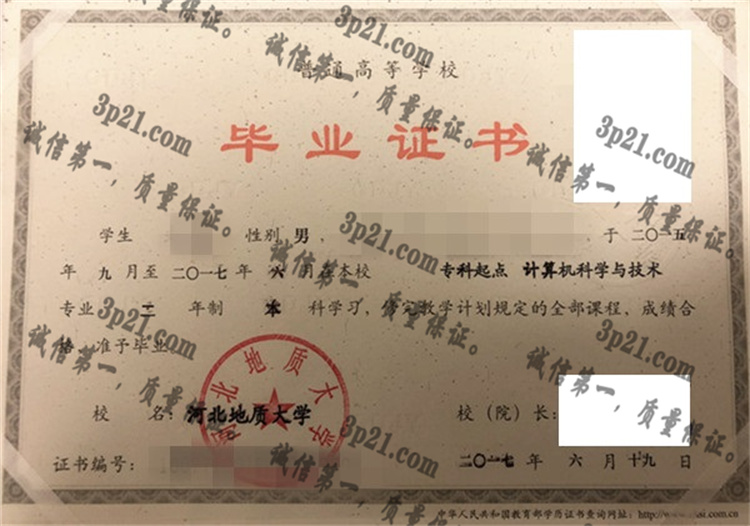 普通高等学校
毕业证书
学生 性别 男， 于 二〇一五
年 九 月至 二〇一七 年 六 月在本校 专科起点 计算机科学与技术
专业 二 年制 本 科学习，修完教学计划规定的全部课程、成绩合
格，准予毕业。
河北地质大学
校 名：河北地质大学 校（院）长：
证书编号： 二〇一七 年 六 月 十九 日
中华人民共和国教育部学历证书查询网址：http://www.chsi.com.cn
3p21.com
诚信第一，质量保证。
3p21.com
诚信第一，质量保证。
3p21.com
诚信第一，质量保证。
3p21.com
诚信第一，质量保证。
3p21.com
诚信第一，质量保证。
3p21.com
诚信第一，质量保证。
3p21.com
诚信第一，质量保证。
3p21.com
诚信第一，质量保证。